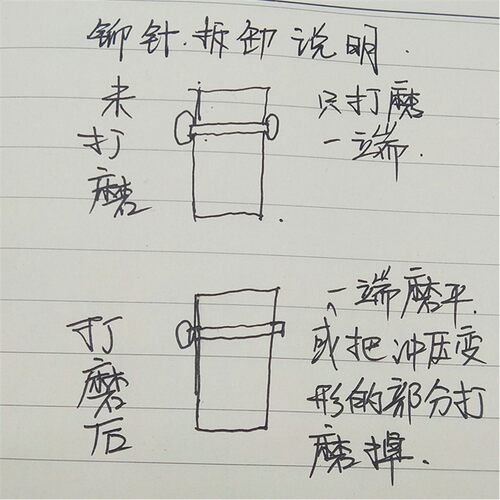 铆针.拆卸说明.
未打磨
只打磨
一端.
打磨后
一端磨平.
或把冲压变
形的部分打
磨掉.